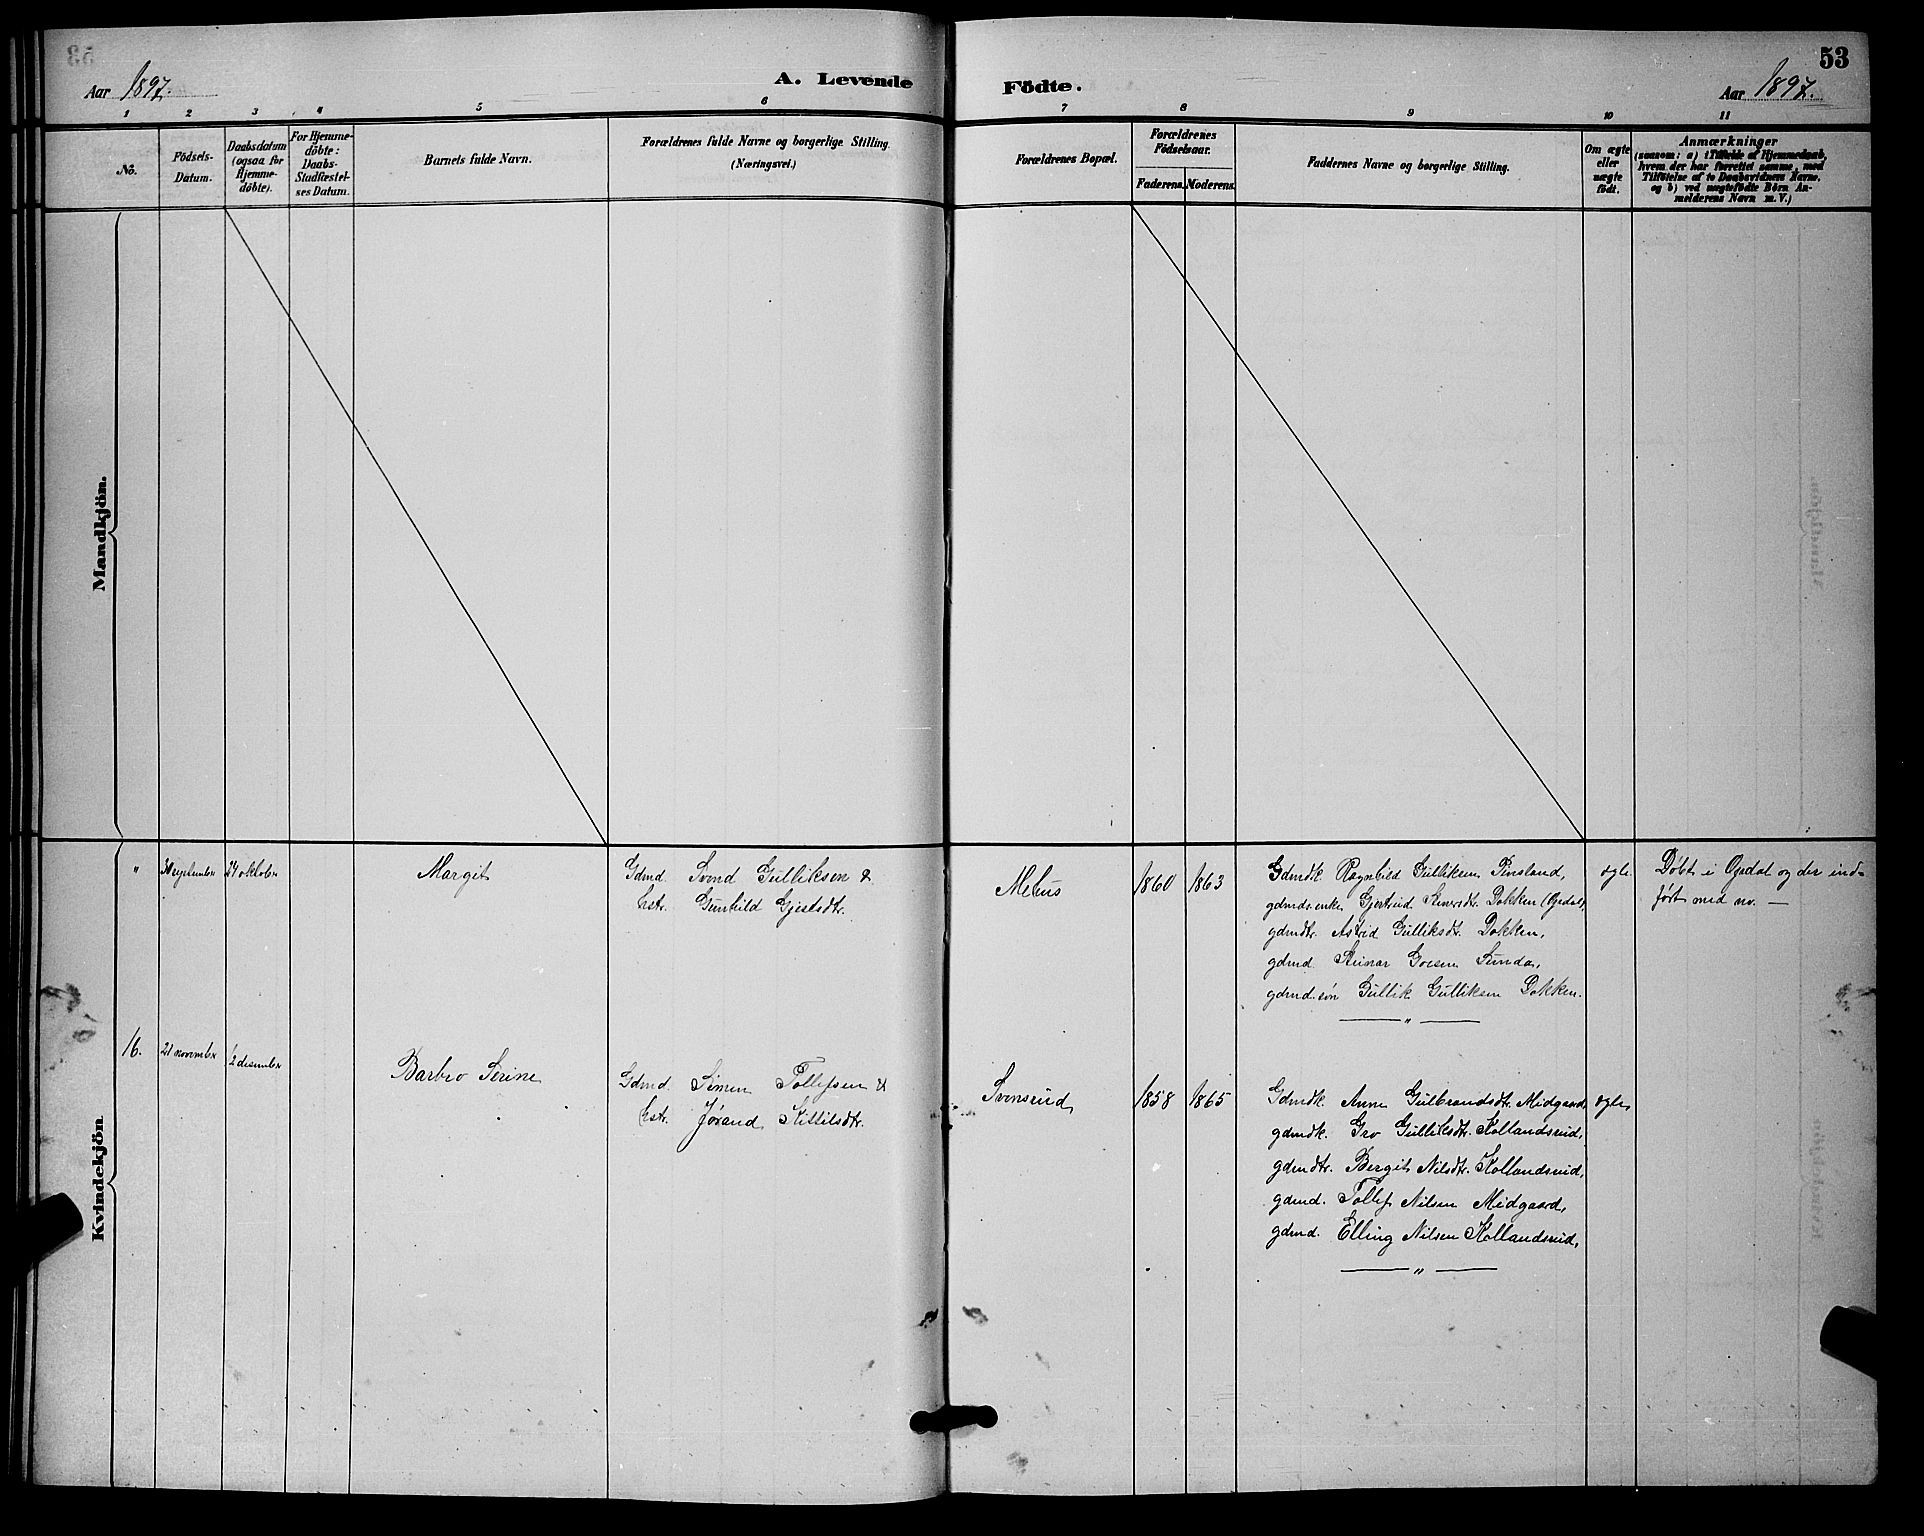 53
Aar 1897.
A. Levende Födte.
Aar 1897.
1 2 3 4 5 6 7 8 9 10 11
No.
Födsels-Datum.
Daabsdatum (ogsaa for Hjemmedöbte).
For Hjemmedöbte: Daabs-Stadfæstelses Datum.
Barnets fulde Navn.
Forældrenes fulde Navne og borgerlige Stilling. (Næringsvei.)
Forældrenes Bopæl.
Forældrenes Födselsaar.
Faderens. Moderens.
Faddernes Navne og borgerlige Stilling.
Om ægte eller uægte födt.
Anmærkninger
(saasom: a) i Tilfælde af Hjemmedaab, hvem der har forrettet samme, med Tilföielse af to Daabsvidners Navne, og b) ved uægtefödte Börn Anmelderens Navn m. V.)
Mandkjön.
Kvindekjön
" 30 september 24 oktober Margit
Gdmd. Svend Gulliksen &
hstr. Gunhild Gjertsdtr.
Mehus 1860 1863
Gdmdk. Ragnhild Gulliksen
gdmds.enke Gjertrud Dokken (Opdal),
gdmdtr. Astrid Gulliksdtr. Dokken,
gdmd. Steinar Goesen
gdmd.søn Gullik Gulliksen Dokken.
ægte
Döbt i Opdal og der ind=
fört med no. —
16. 21 november 12 desember Barbro Serine
Gdmd. Simen Tollefsen &
hstr. Jörand Kittilsdtr.
Svensrud 1858 1865
Gdmdk. Anne Gulbrandsdtr. Midgaard,
gdmdk. Gro Gulliksdtr. Kollandsrud,
gdmdtr. Bergit Nilsdtr. Kollandsrud,
gdmd. Tollef Nilsen Midgaard,
gdmd. Elling Nilsen Kollandsrud,
ægte